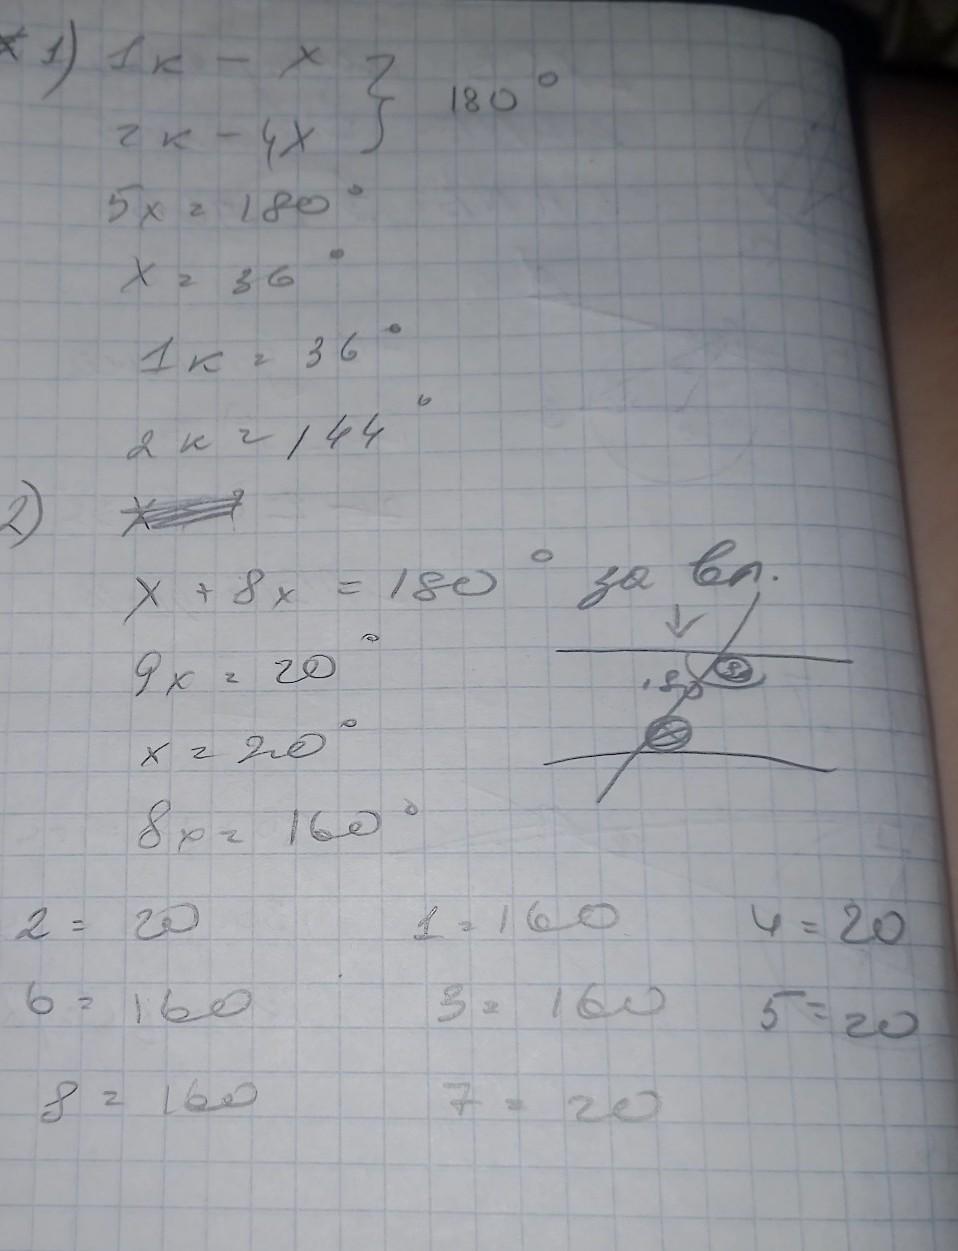 1) 1к - x } 180°
2к - 4x
5x = 180°
x = 36°
1к = 36°
2к = 144°
2)
x + 8x = 180° за вл.
9x = 20°
x = 20°
8x = 160°
180
2 = 20 1 = 160 4 = 20
6 = 160 3 = 160 5 = 20
8 = 160 7 = 20